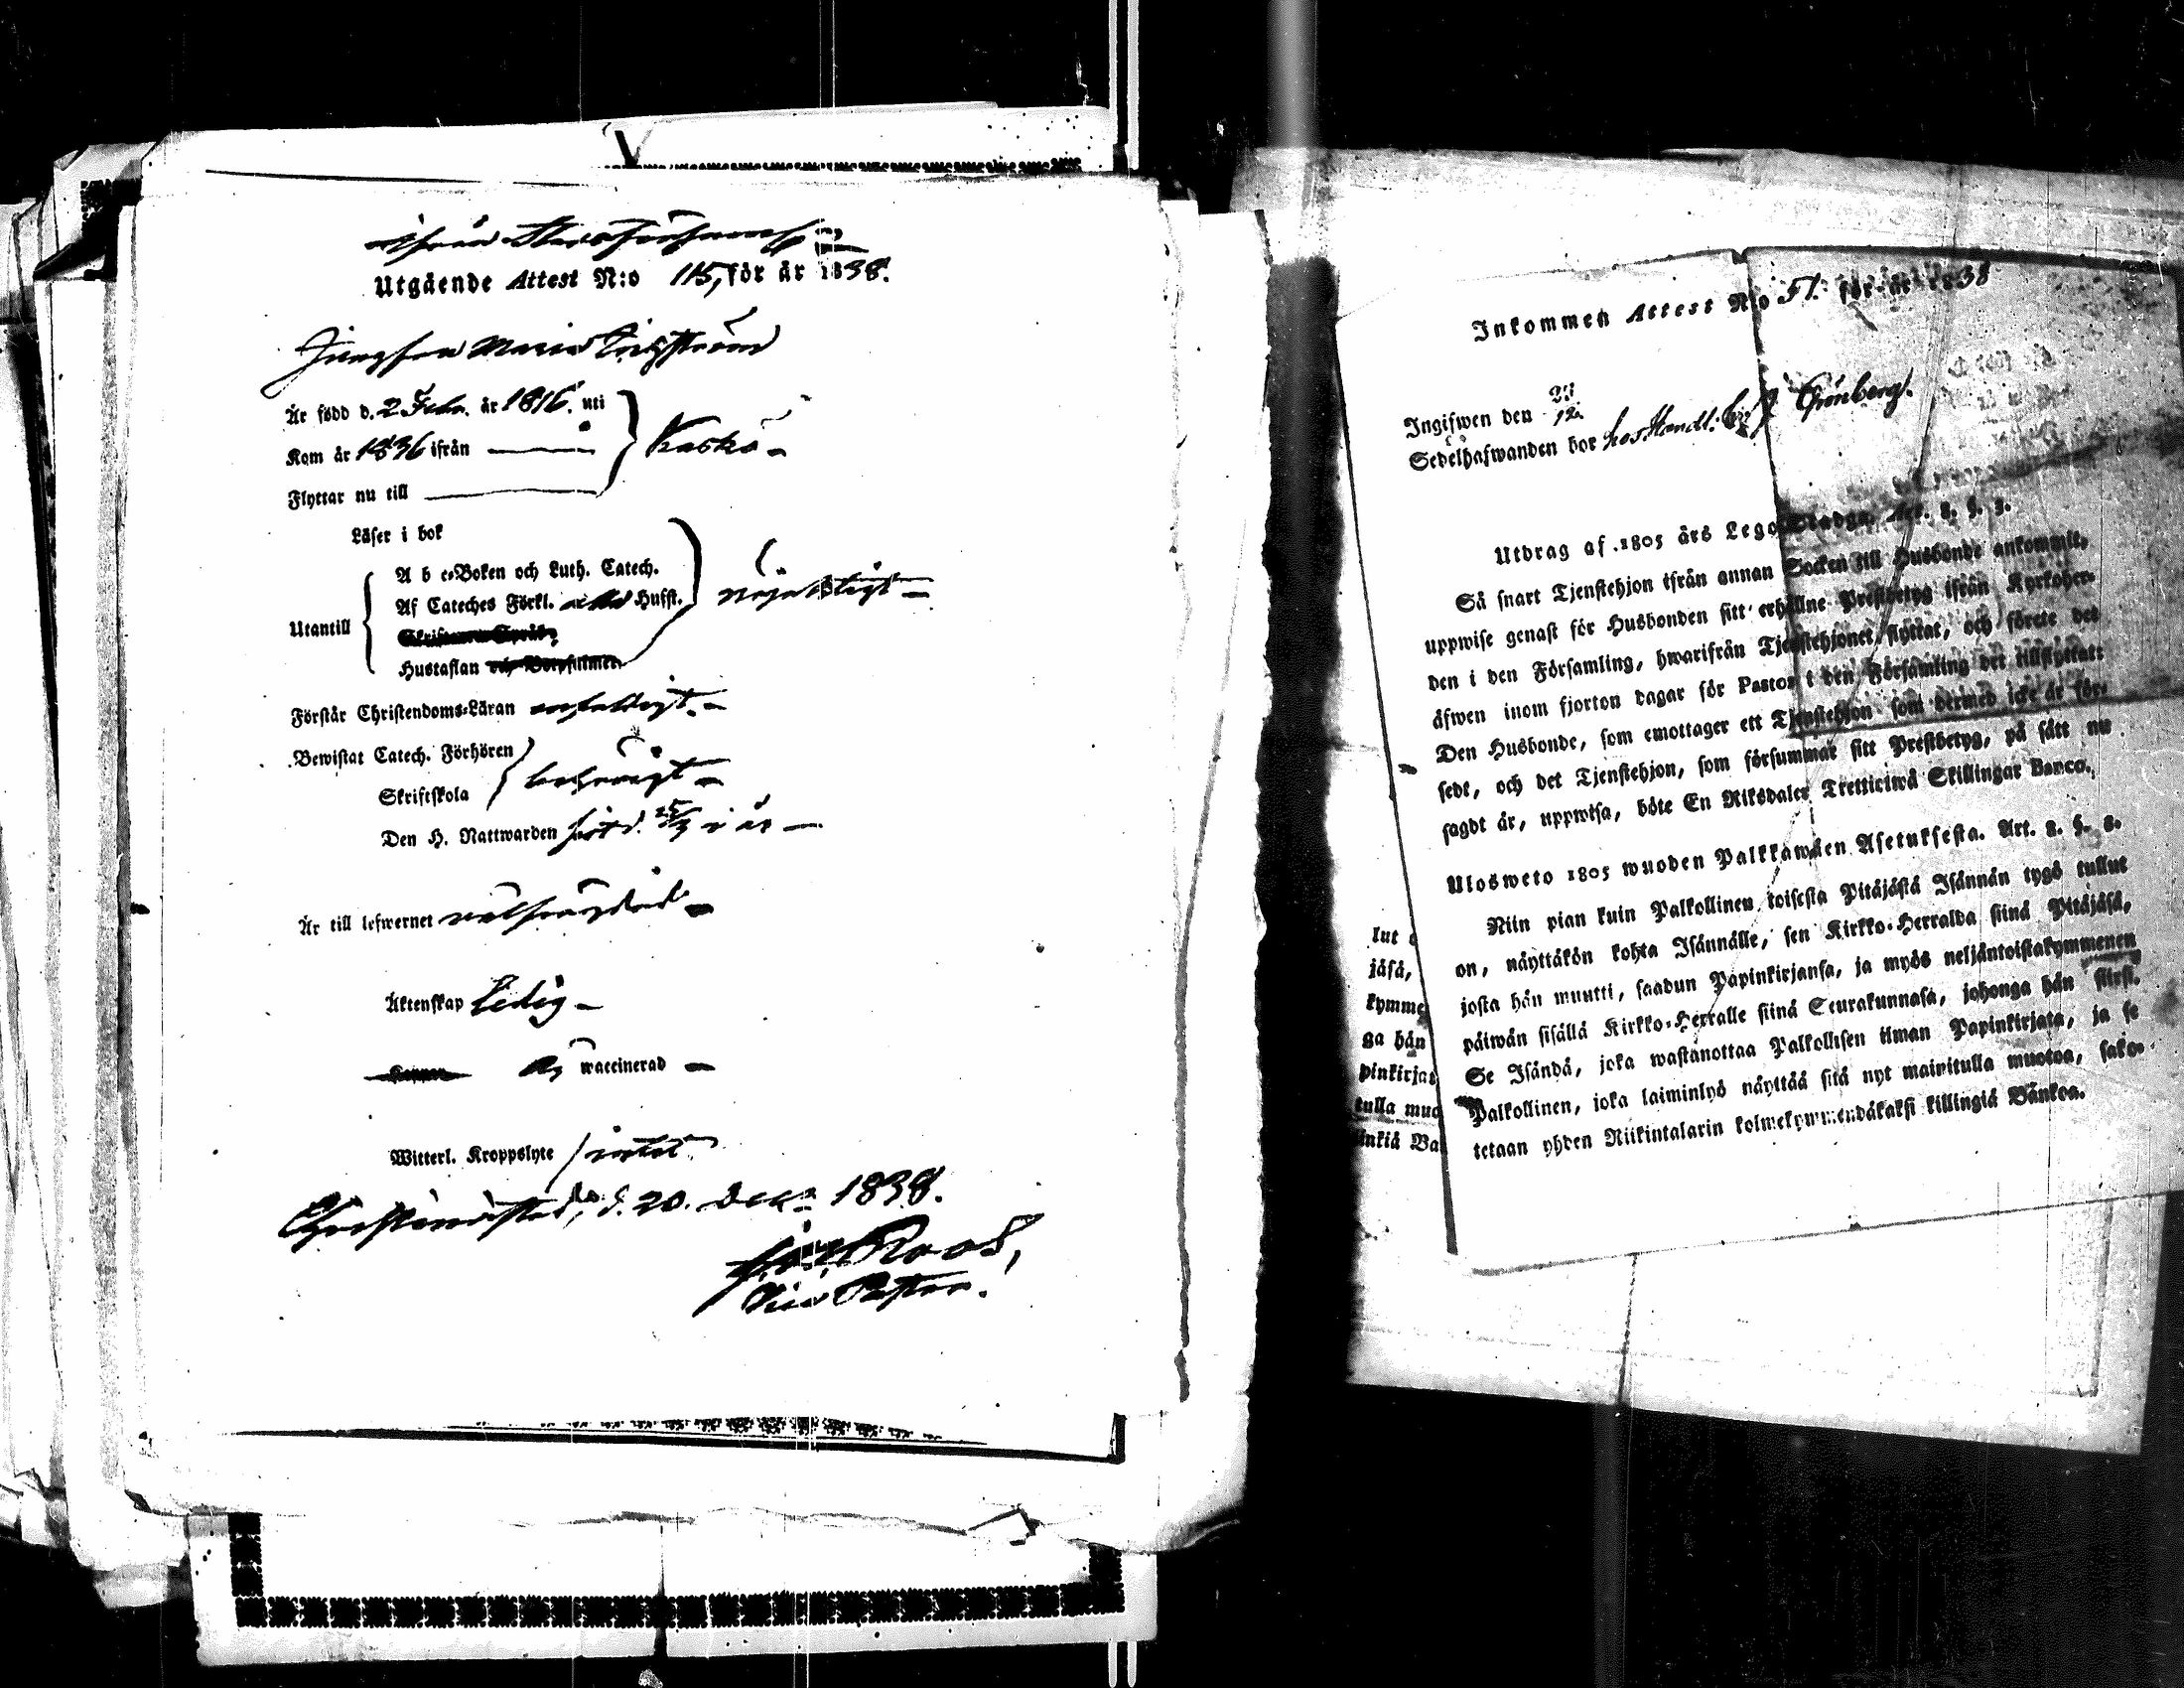 ifrån
Utgående Attest N:o 115, för år 1838.
Jungfrun Maria
Är född d. 2 Febr. år 1816. uti
Kom år 1836 ifrån
Kaskö
Flyttar nu till
Läser i bok
A b c-Boken och Luth. Catech.
Af Cateches Förkl. Husfl.
nöjaktigt
Utantill
Skriftenes Språk
Hustaflan och Botpsalmer
Förstår Christendoms-Läran enfaldigt.
Bewistat Catech. Förhören
behörigt
Skriftskola
Den H. Nattwarden sist d. 25/3 i år
Är till lefwernet välfrägdad
Äktenskap Ledig
Koppor waccinerad
Witterl. Kroppslyte intet
Christinestad, d. 20. Dec. 1838.
Roos,
Vice Pastor.
Inkommen Attest N:o 51. för år 1838
Ingifwen den 23/12.
Sedelhafwanden bor hos Handl: Grönberg.
Utdrag af 1805 års Lego Stadga. Art. 8. §. 3.
Så snart Tjenstehjon ifrån annan Socken till Husbonde ankommit,
uppwise genast för Husbonden sitt erhållne Prestbetyg ifrån Kyrkoher-
den i den Församling, hwarifrån Tjenstehjonet flyttat, och förete det
äfwen inom fjorton dagar för Pastor i den Församling det tillflyttat:
Den Husbonde, som emottager ett Tjenstehjon som dermed icke är för-
sedt, och det Tjenstehjon, som försummar sitt Prestbetyg, på sätt nu
sagdt är, uppwisa, böte En Riksdaler Trettiotwå Skillingar Banco.
Ulosweto 1805 wuoden Palkkawäen Asetuksesta. Art. 8. §. 8.
Niin pian kuin Palkollinen toisesta Pitäjästä Isännän tygö tullut
on, näyttäkön kohta Isännälle, sen Kirkko-Herralda siinä Pitäjäsä,
josta hän muutti, saadun Papinkirjansa, ja myös neljäntoistakymmenen
päiwän sisällä Kirkko-Herralle siinä Seurakunnasa, johonga hän siirsi.
Se Isändä, joka wastanottaa Palkollisen ilman Papinkirjata, ja se
Palkollinen, joka laiminlyö näyttää sitä nyt mainitulla muotoa, sako-
tetaan yhden Riikintalarin kolmekymmendäkaksi killingiä Bänkoa.
lut
jäsä,
kymme
ga hän
pinkirjat
tulla muo
inkiä Ba